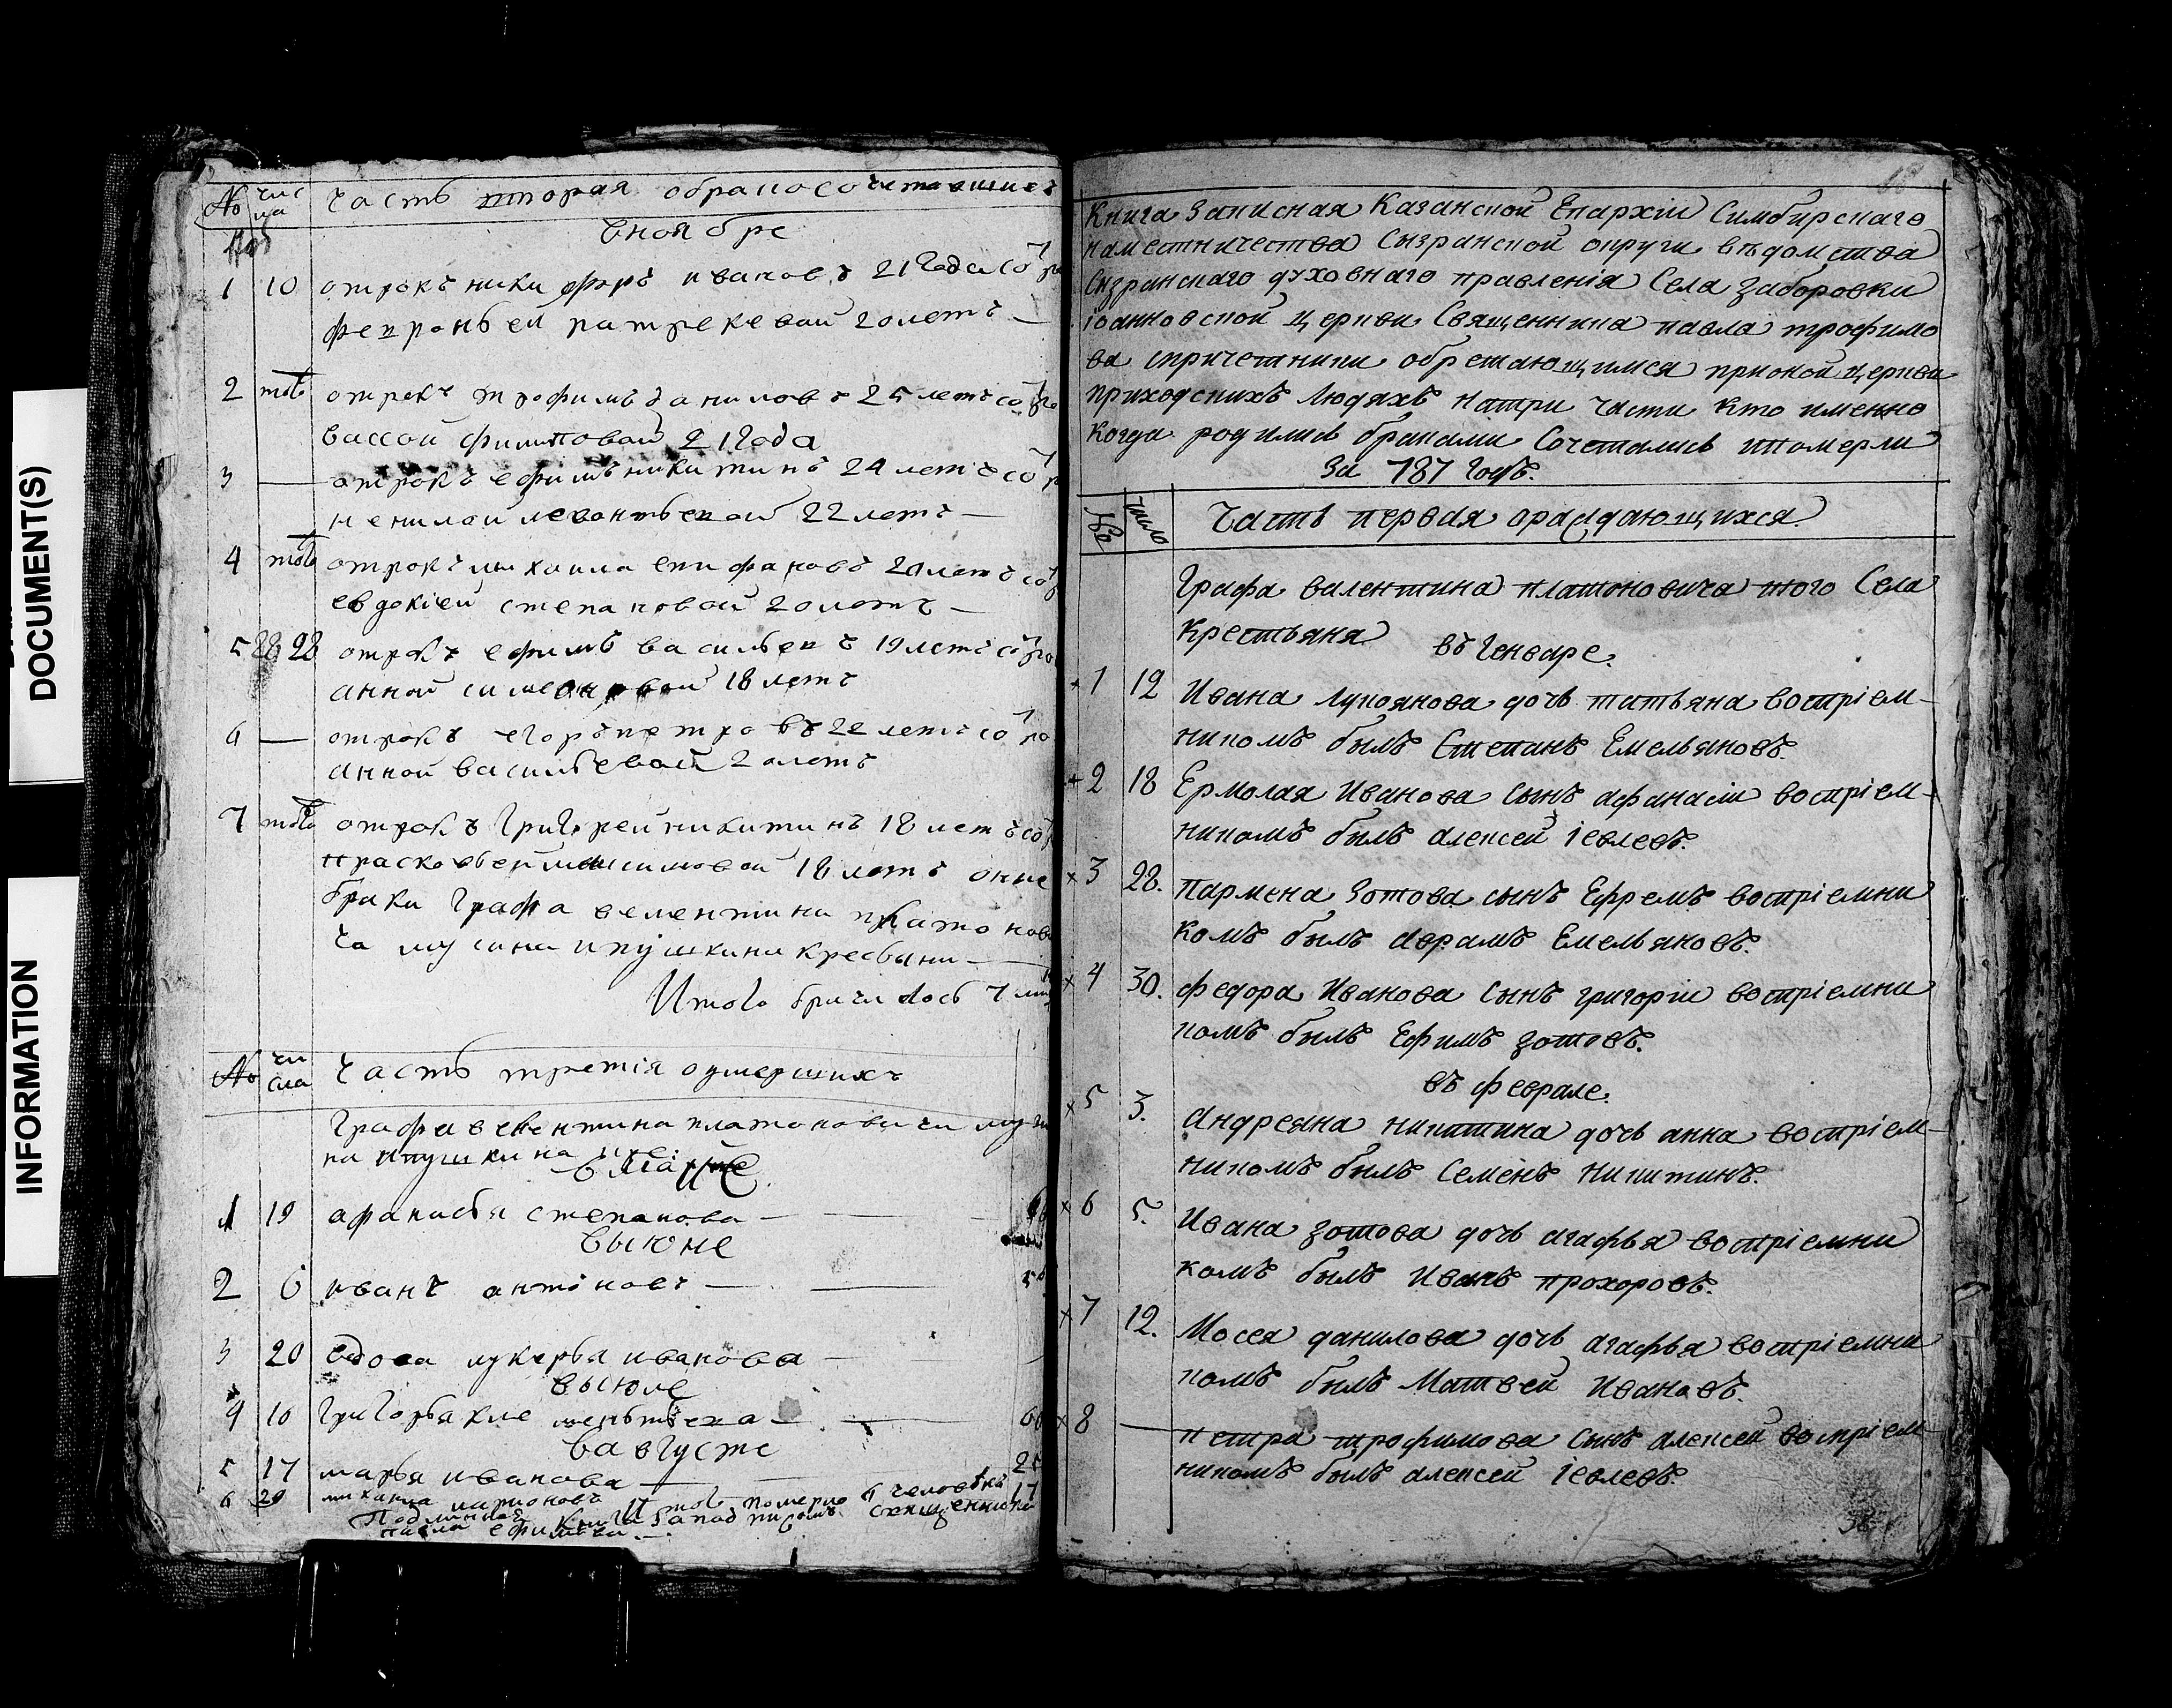 № чис ла Часть вторая обракосочетавшихс
вноябре
Нояб
1 10 отрокъ никифоръ ивановъ 21 года со
февроньей патрекевой 20 летъ
2 того отрокъ трофимъ даниловъ 25 летъ со
вассой филиповой 21 года
3 — отрокъ ефимъ никитинъ 24 летъ со
ненилой левонтьевой 22 летъ —
4 того отрокъ михаила епифановъ 20 летъ со
евдокіей степановой 20 летъ —
5 22 отрокъ ефимъ васильевъ 19 летъ со
анной симеоновой 18 летъ
6 — отрокъ егоръ петровъ 22 летъ со
анной васильевой 20 летъ
7 того отрокъ григорей никитинъ 18 летъ со
прасковьей максимовой 18 летъ оные
браки графа велентина платонови
ча мусина пушкина кресьяни
Итого брачилось 7
№ чи сла Часть третія о умершихъ
графа велентина платоновича муси
на пушкина
в маие
1 19 афанасья степанова —
выюне
2 6 иванъ антоновъ —
3 20 вдова лукерья иванова —
выюле
4 10 григорья клементьева — 60
вавгусте
5 17 марья иванова — 25
6 29 михаила ларионовъ Итого померло 6 человекъ 17
Подлинная книга заподписомъ священника
павла ефимова
Книга Записная Казанской Епархіи Симбирскаго
наместничества Сызранской округи ведомства
Сызранскаго духовнаго правленія Села Заборовки
іоанновской церкви Священника павла трофимо
ва спричетники обретающимся прионой церкви
приходскихъ людяхъ натри части кто именно
когда родились браками Сочетались ипомерли
за 787 годъ.
№ число Часть первая ораждающихся
Графа валентина платоновича того Села
крестьяня
въ Генваре.
1 12 Ивана лукоянова дочь татьяна воспріем-
никомъ былъ Степанъ Емельяновъ.
2 18 Ермолая Иванова сынъ афанасіи воспріем-
никомъ былъ алексей іевлевъ.
3 28. пармена Зотова сынъ Ефремъ воспріемни
комъ былъ аврамъ Емельяновъ.
4 30. федора Иванова Сынъ григорги воспріемни
комъ былъ Ефимъ зотовъ.
въ феврале.
5 3. Андреяна никитина дочь анна воспріем-
никомъ былъ Семенъ Никитинъ.
6 5. Ивана зотова дочь агафья воспріемни
комъ былъ Иванъ прохоровъ.
7 12. Мосея данилова дочь агафья воспріемни
комъ былъ Матвеи Ивановъ.
8 — петра трофимова сынъ алексей воспріем
никомъ былъ алексей іевлевъ.
DOCUMENT(S)
INFORMATION